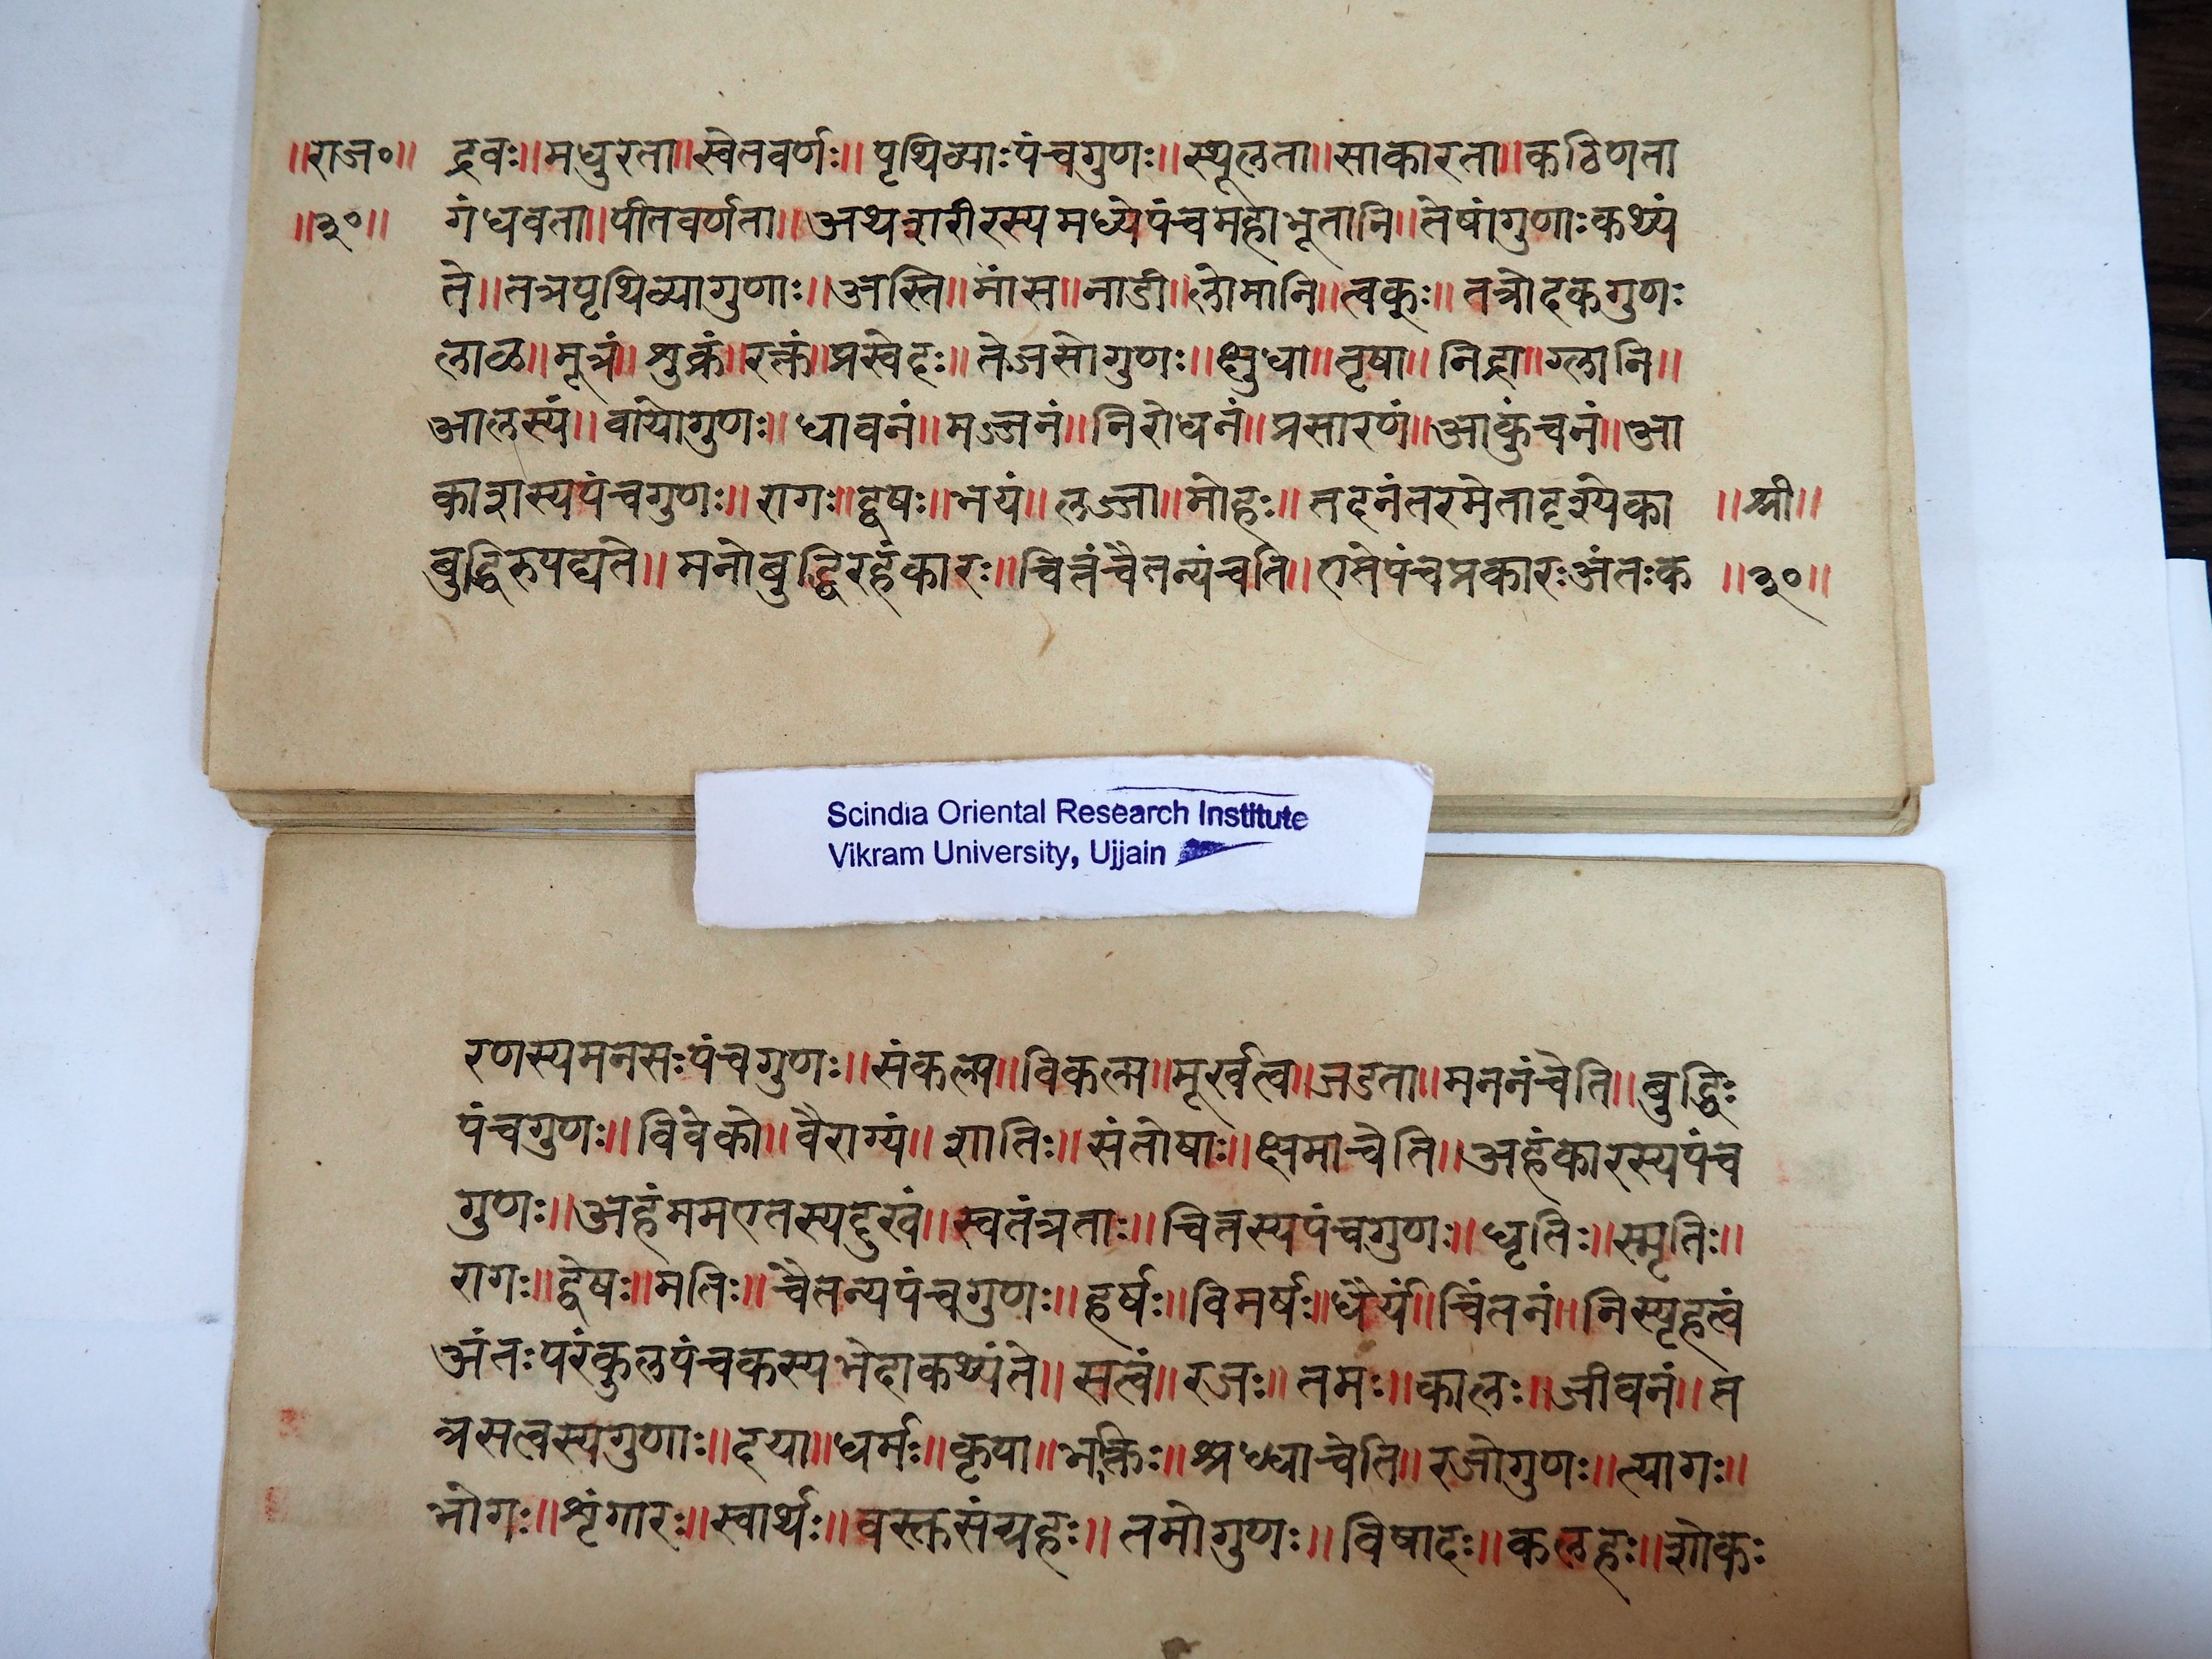 ॥राज०॥ द्रवः॥मधुरता॥स्वेतवर्णः॥पृथिव्याःपंचगुणः॥स्थूलता॥साकारता॥कठिणता
॥३०॥ गंधवता॥पीतवर्णता॥अथशरीरस्यमध्येपंचमहाभूतानि॥तेषांगुणाःकथ्यं
ते॥तत्रपृथिव्यागुणाः॥अस्ति॥मांस॥नाडी॥लोमानि॥त्वकुः॥तत्रोदकगुणः
लाळ॥मूत्रं॥शुक्रं॥रक्तं॥प्रस्वेदः॥तेजसोगुणः॥क्षुधा॥तृषा॥निद्रा॥ग्लानि॥
आलस्यं॥वायोगुणः॥धावनं॥मज्जनं॥निरोधनं॥प्रसारणं॥आकुंचनं॥आ
काशस्यपंचगुणः॥रागः॥द्वेषः॥भयं॥लज्जा॥मोहः॥तदनंतरमेतादृश्येका ॥श्री॥
बुद्धिरुपद्यते॥मनोबुद्धिरहंकारः॥चित्तंचैतन्यंचति॥एतेपंचप्रकारःअंतःक ॥३०॥
Scindia Oriental Research Institute
Vikram University, Ujjain
रणस्यमनसःपंचगुणः॥संकल्प॥विकल्प॥मूर्खत्व॥जडता॥मननंचेति॥बुद्धिः
पंचगुणः॥विवेको॥वैराग्यं॥शातिः॥संतोषाः॥क्षमाचेति॥अहंकारस्यपंच
गुणः॥अहंममएतस्यदुखं॥स्वतंत्रताः॥चित्तस्यपंचगुणः॥धृतिः॥स्मृतिः॥
रागः॥द्वेषः॥मतिः॥चैतन्यपंचगुणः॥हर्षः॥विमर्षः॥धैर्यं॥चिंतनं॥निस्पृहत्वं
अंतःपरंकुलपंचकस्यभेदाकथ्यंते॥सत्वं॥रजः॥तमः॥कालः॥जीवनं॥त
त्रसत्वस्यगुणाः॥दया॥धर्मः॥कृपा॥भक्तिः॥श्रध्धाचेति॥रजोगुणः॥त्यागः॥
भोगः॥शृंगारः॥स्वार्थः॥वस्क्तसंग्रहः॥तमोगुणः॥विषादः॥कलहः॥शोकः